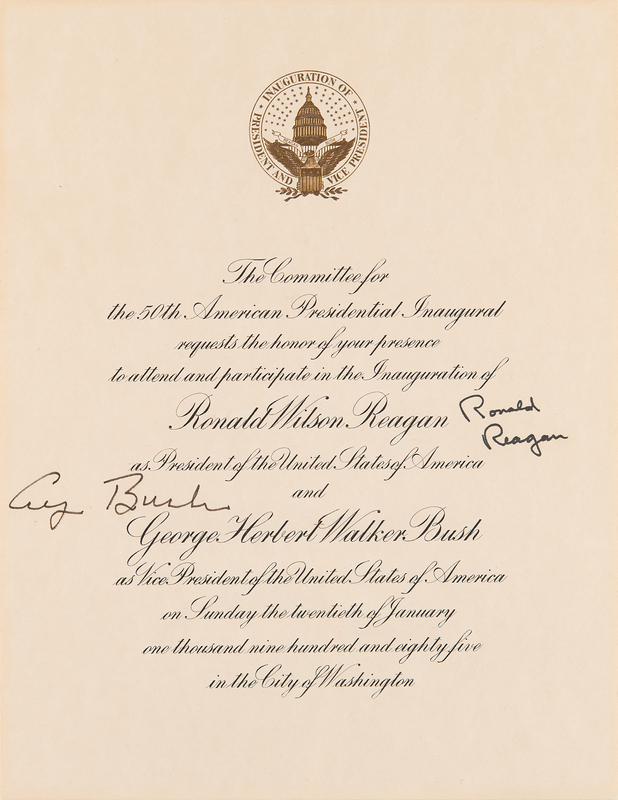 INAUGURATION OF
PRESIDENT AND VICE PRESIDENT
The Committee for
the 50th American Presidential Inaugural
requests the honor of your presence
to attend and participate in the Inauguration of
Ronald Wilson Reagan
Ronald
Reagan
as President of the United States of America
and
Bush
George Herbert Walker Bush
as Vice President of the United States of America
on Sunday the twentieth of January
one thousand nine hundred and eighty five
in the City of Washington